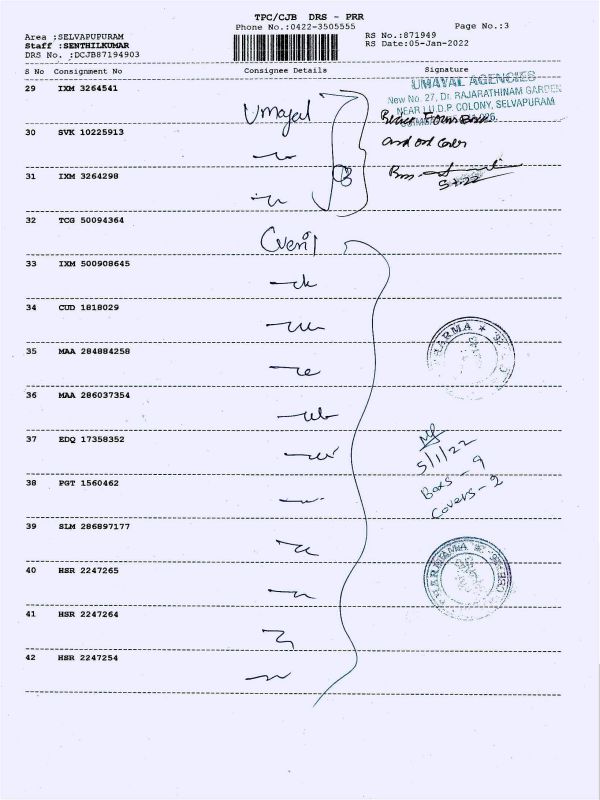 TPC/CJB DRS - PRR
Phone No.:0422-3505555
Page No.:3
Area :SELVAPUPURAM
Staff :SENTHILKUMAR
DRS No. :DCJB87194903
RS No.:871949
RS Date:05-Jan-2022
S No Consignment No Consignee Details Signature
UMAYAL AGENCIES
New No. 27, Dr. RAJARATHINAM GARDEN
NEAR I.U.D.P. COLONY, SELVAPURAM
29 IXM 3264541 Umayal
30 SVK 10225913
and
31 IXM 3264298
5.1.22
32 TCG 50094364
33 IXM 500908645
34 CUD 1818029
35 MAA 284884258
PHARMA
36 MAA 286037354
37 EDQ 17358352
5/1/22
38 PGT 1560462
Boxs - 9
Covers - 2
39 SLM 286897177
40 HSR 2247265
41 HSR 2247264
42 HSR 2247254